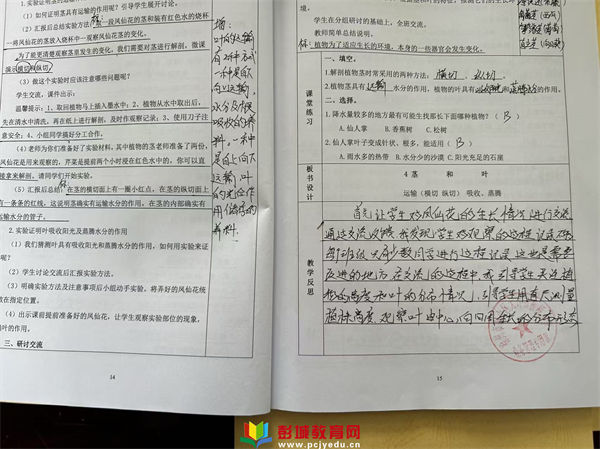 (1)如何证明茎具有运输水分的作用?引导学生展开讨论。
(2)汇报后总结实验方法:取一段凤仙花的茎和装有红色水的烧杯
—将凤仙花的茎放入烧杯中一观察凤仙花茎的变化。
为了能更清楚观察茎里发生的变化,我们需要对茎进行解剖,微课
演示横切和纵切。
(3)做这个实验时应该注意哪些问题呢?
学生交流,课件出示:
温馨提示:1、取回植物马上插入墨水中;2、植物从水中取出后,
先在清水中清洗,再在纸上进行解剖,及时作观察记录;3、使用刀子注
意安全;4、小组同学搞好分工合作。
(4)老师为你们准备好了实验材料,其中植物的茎老师准备了两份,
凤仙花是用来观察的,芹菜是提前两个小时浸在红色水中的,你可以直
接拿来解剖,请同学们开始实验。
(5)汇报后总结:在茎的横切面上有一圈小红点,在茎的纵切面上
有一条条的红线,这说明茎确实有运输水分的作用,在茎的内部确实有
运输水分的管子。
2.实验证明叶吸收阳光及蒸腾水分的作用。
(1)我们猜测叶具有吸收阳光和蒸腾水分的作用,如何用实验来证
明呢?
(2)学生讨论交流后汇报实验方法。
(3)明确实验方法及注意事项后小组动手实验。将弄好的凤仙花统
放在指定位置。
(4)出示课前提前准备好的凤仙花,让学生观察实验部位的现象,
叶的作用。
三、研讨交流
增:
叶的运输
有2种方式
一种是自
向上运输
水分及
吸收的养
料。一种
是自上向下
运输,叶
的光合作
用储存的
养料.
14
学生在分组研讨的基础上,全班交流。
教师简单总结说明。
植物为了适应生长的环境,本身的一些器官会发生变化。
课堂练习
一、填空。
1.解剖植物茎时常采用的两种方法:横切、纵切.
2.植物茎具有运输水分的作用,植物的叶具有和蒸腾水分的作用。
二、选择。
1.降水量较多的地方最有可能生找那长下面哪种植物?(B)
A.仙人掌 B.香蕉树 C.松树
2.仙人掌叶子变成针状,根多,能适用(B)
A.雨水多的热带 B.水分少的沙漠 C.阳光充足的石崖
板书设计
4 茎和叶
运输(横切 纵切) 吸收、蒸腾
教学反思
首先让学生对凤仙花的生长情况进行交流
通过交流
我发现学生对观察的过程记录
每班级大部分数同学进行过程记录 这也是需要
改进的地方 在交流的过程中 我引导学生关注植
株的高度和叶的分布情况,引导学生用直尺测量
植株高度,观察叶由中心向四周生长的分布状态
15
彭城教育网
www.pcjyedu.cn